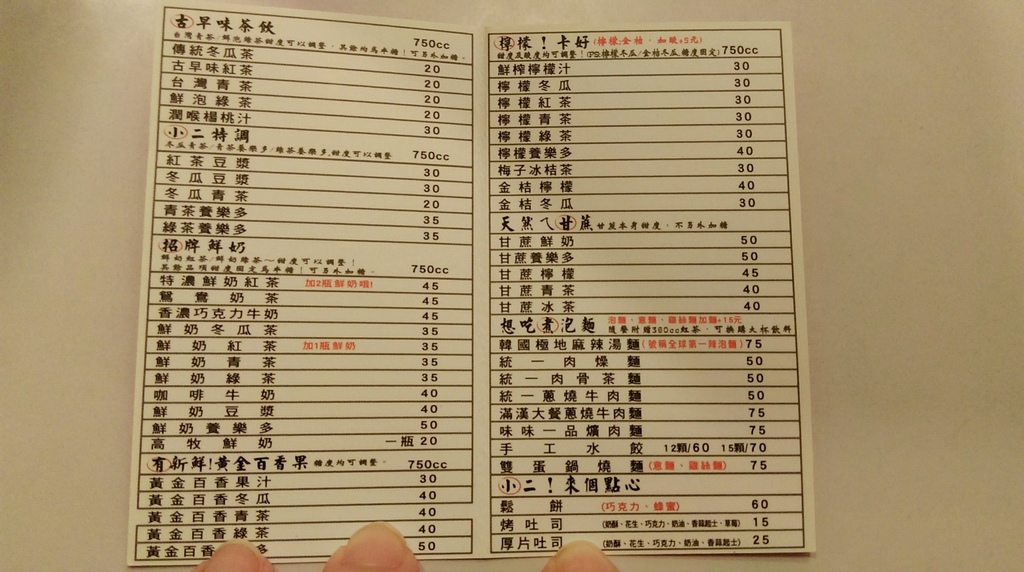 古早味茶飲 750cc
台灣青茶/鮮泡綠茶甜度可以調整,其餘均為半糖!可另外加糖。
傳統冬瓜茶 20
古早味紅茶 20
台灣青茶 20
鮮泡綠茶 20
潤喉楊桃汁 30
小二特調 750cc
冬瓜青茶/青茶養樂多/綠茶養樂多,甜度可以調整
紅茶豆漿 30
冬瓜豆漿 30
冬瓜青茶 20
青茶養樂多 35
綠茶養樂多 35
招牌鮮奶 750cc
鮮奶紅茶/鮮奶綠茶~甜度可以調整!
其餘品項甜度固定為半糖!可另外加糖。
特濃鮮奶紅茶 加2瓶鮮奶哦! 45
鴛鴦奶茶 45
香濃巧克力牛奶 45
鮮奶冬瓜茶 35
鮮奶紅茶 加1瓶鮮奶 35
鮮奶青茶 35
鮮奶綠茶 35
咖啡牛奶 40
鮮奶豆漿 40
鮮奶養樂多 50
高牧鮮奶 一瓶20
有新鮮!黃金百香果 糖度均可調整。 750cc
黃金百香果汁 30
黃金百香冬瓜 40
黃金百香青茶 40
黃金百香綠茶 40
黃金百香 多 50
檸檬!卡好(檸檬:金桔,加酸+5元)
甜度及酸度均可調整!(PS:檸檬冬瓜/金桔冬瓜糖度固定) 750cc
鮮榨檸檬汁 30
檸檬冬瓜 30
檸檬紅茶 30
檸檬青茶 30
檸檬綠茶 30
檸檬養樂多 40
梅子冰桔茶 30
金桔檸檬 40
金桔冬瓜 30
天然ㄟ甘蔗 甘蔗本身甜度,不另外加糖
甘蔗鮮奶 50
甘蔗養樂多 50
甘蔗檸檬 45
甘蔗青茶 40
甘蔗冰茶 40
想吃煮泡麵 泡麵、意麵、雞絲麵加麵+15元
隨餐附贈360cc紅茶,可換購大杯飲料
韓國極地麻辣湯麵(號稱全球第一辣泡麵) 75
統一肉燥麵 50
統一肉骨茶麵 50
統一蔥燒牛肉麵 50
滿漢大餐蔥燒牛肉麵 75
味味一品爌肉麵 75
手工水餃 12顆/60 15顆/70
雙蛋鍋燒麵(意麵、雞絲麵) 75
小二!來個點心
鬆餅 (巧克力、蜂蜜) 60
烤吐司 (奶酥、花生、巧克力、奶油、香蒜起士、草莓) 15
厚片吐司 (奶酥、花生、巧克力、奶油、香蒜起士) 25